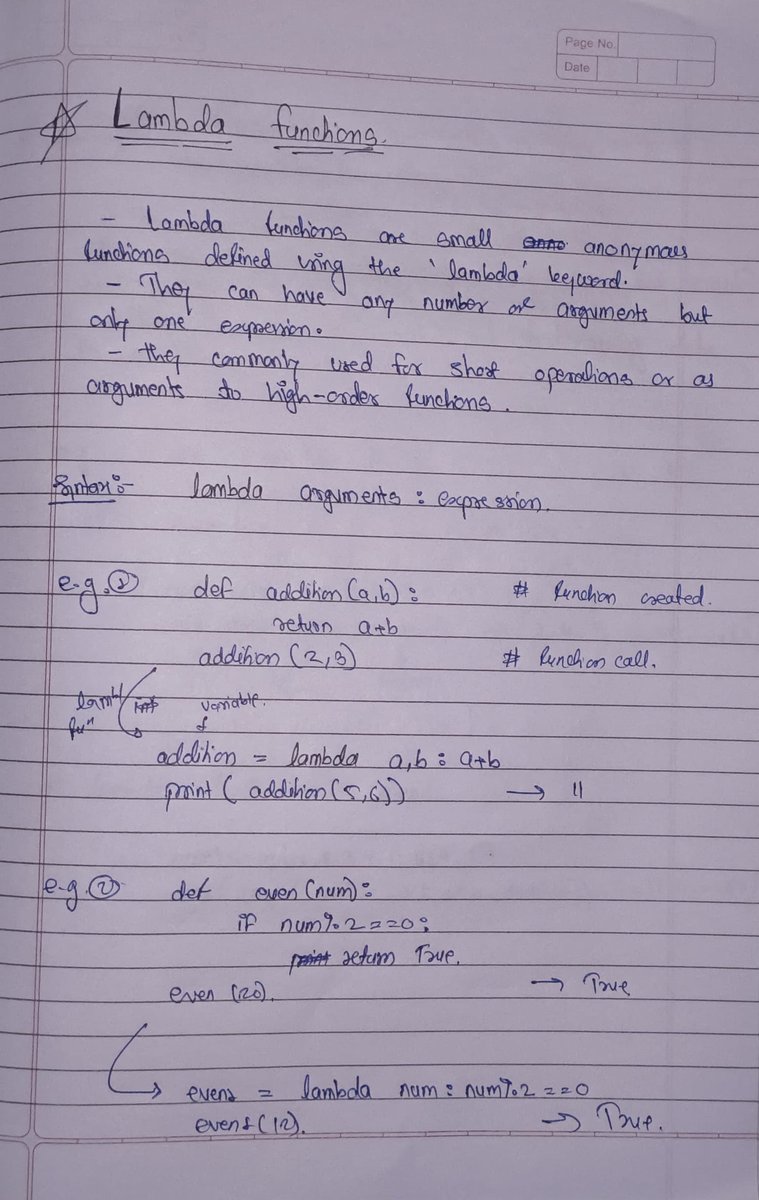 Page No.
Date
Lambda functions.
- Lambda functions are small anonymous
functions defined using the 'lambda' keyword.
- They can have any number of arguments but
only one expression.
- they commonly used for short operations or as
arguments to high-order functions.
Syntax :- lambda arguments : expression.
e.g. ① def addition (a,b) : # function created.
return a+b
addition (2,3) # function call.
lamb variable.
fun
addition = lambda a,b : a+b
print ( addition (5,6)) → 11
e.g. ② def even (num) :
if num%2==0 :
return True.
even (20). → True
evens = lambda num : num%2==0
evens (12). → True.